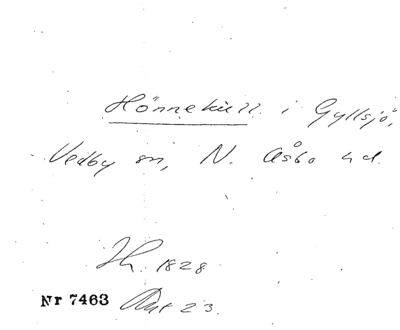 Hönnekull i Gyllsjö,
Vedby sn, N. Åsbo hd.
1828
Nr 7463 Akt 23.